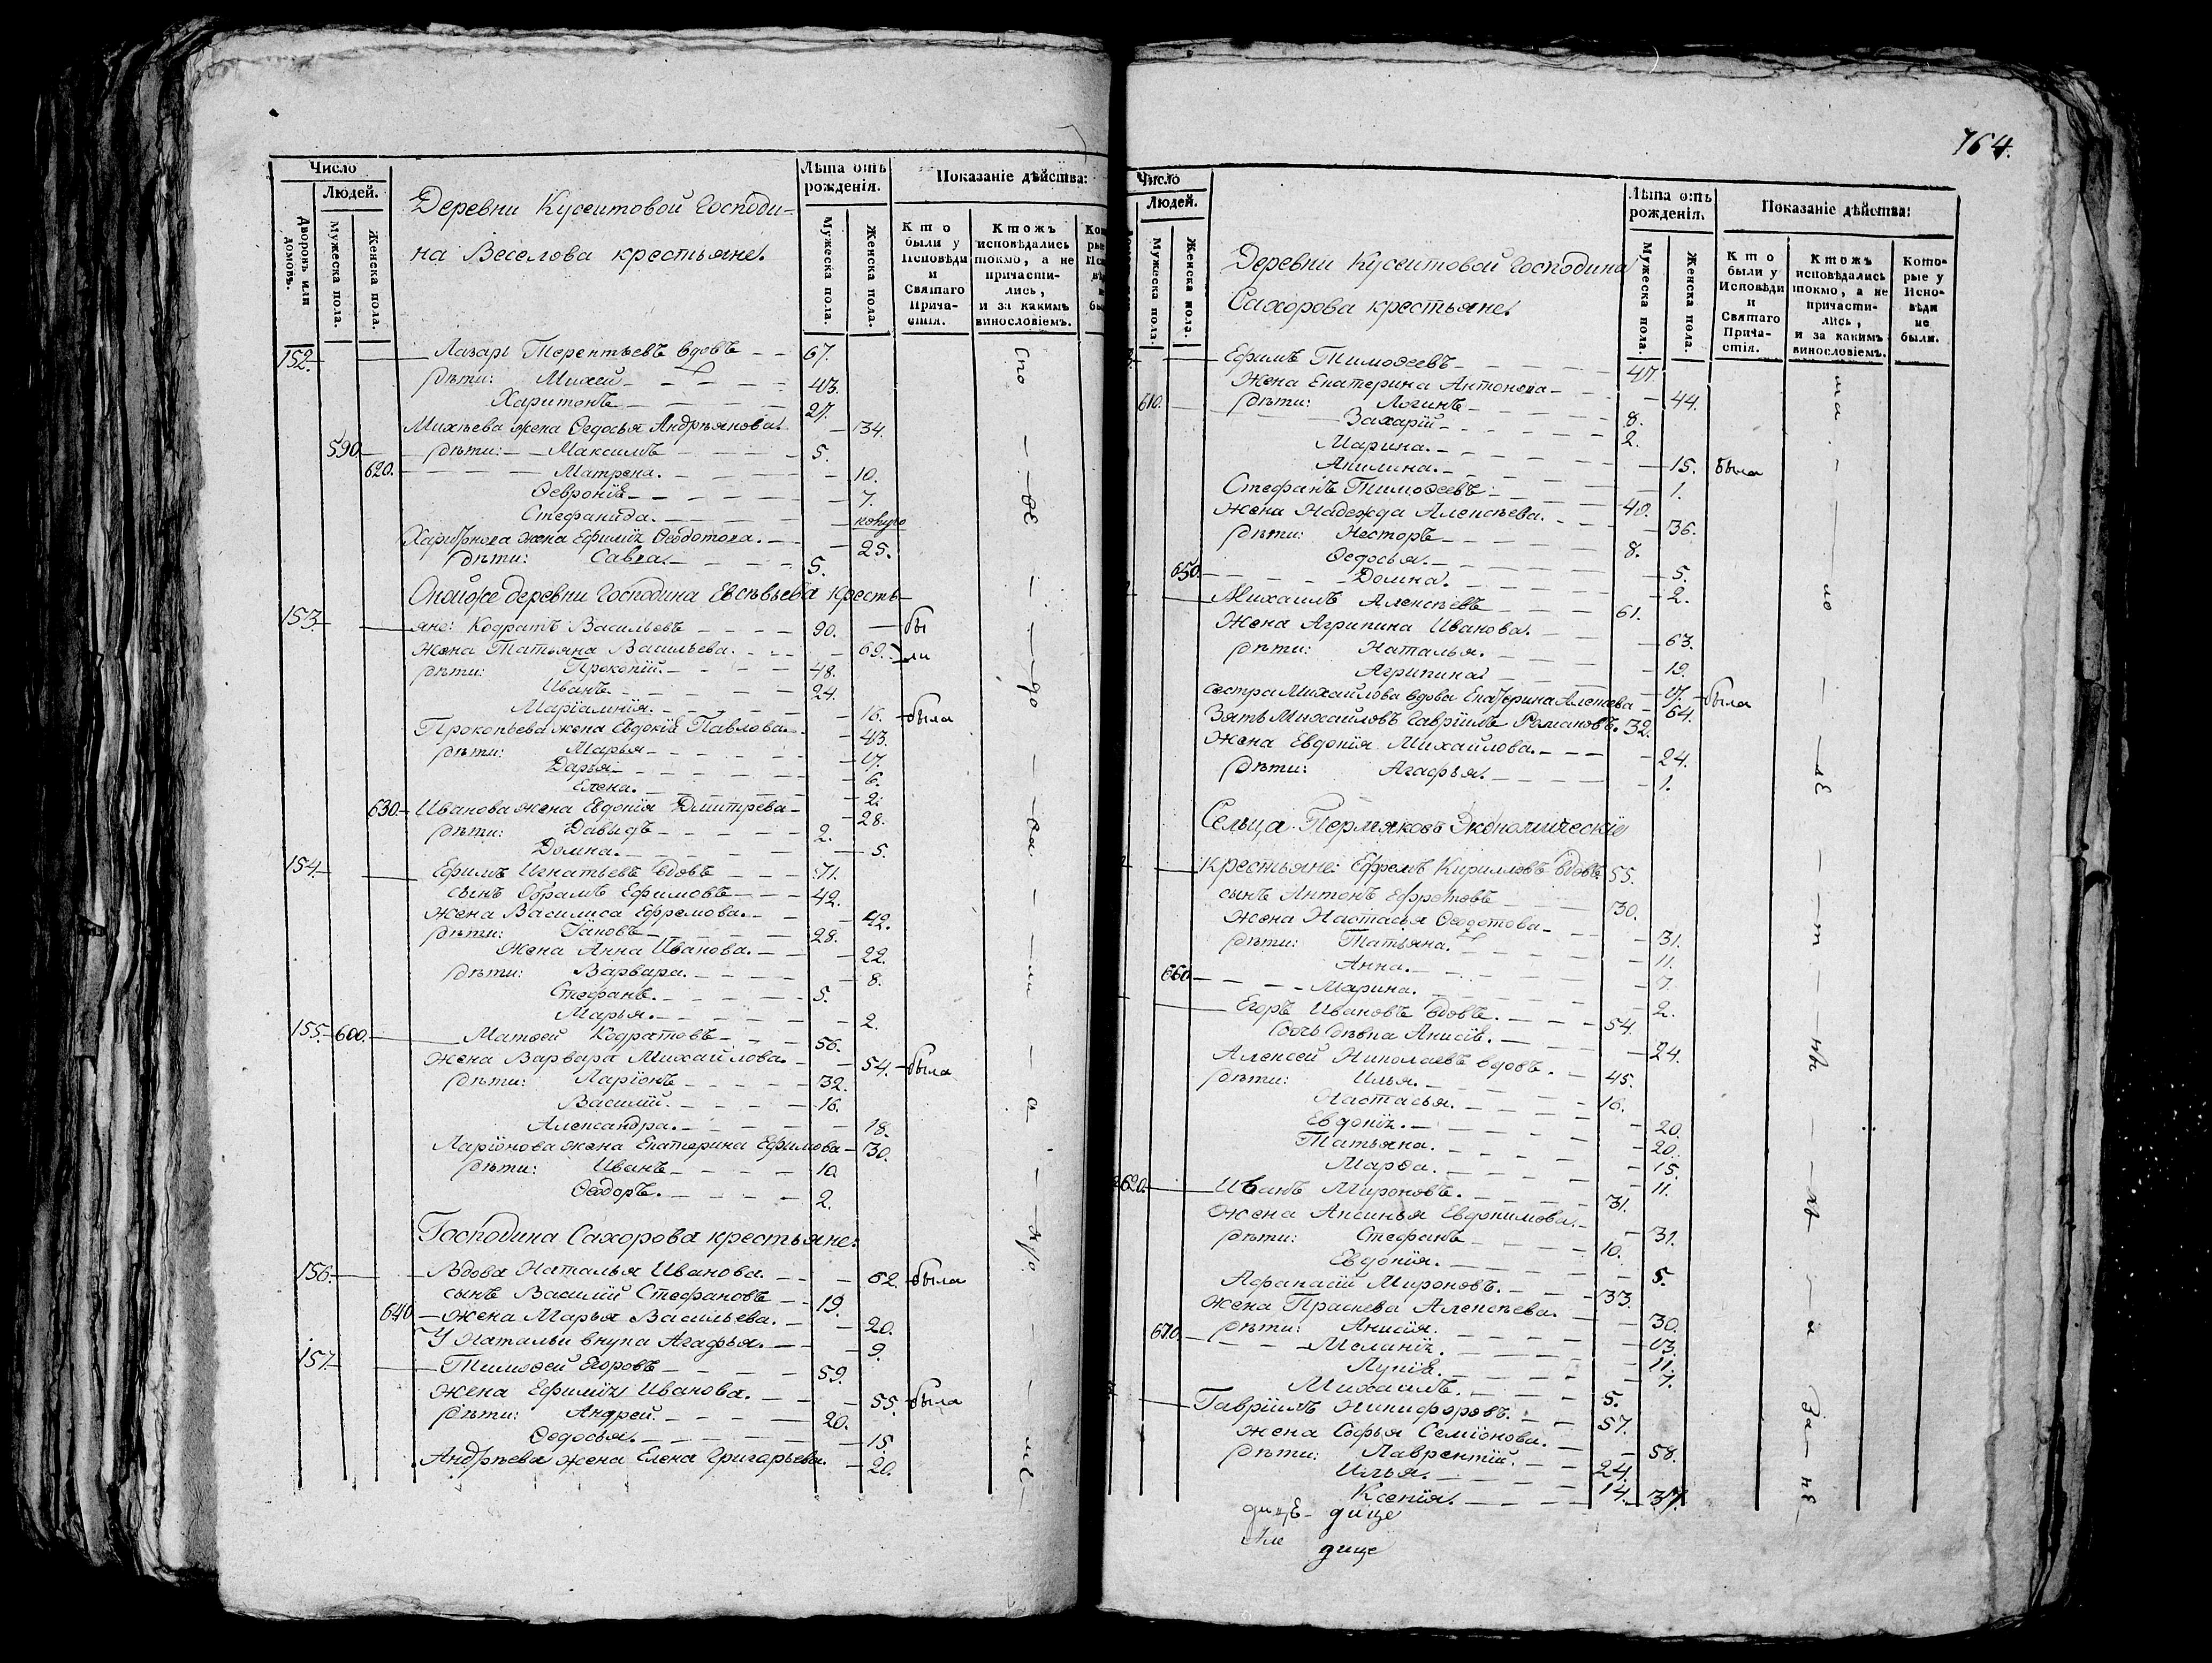 Число
Людей.
Дворовъ или домовъ.
Мужеска пола.
Женска пола.
Деревни Кусеитовой Господи-
на Веселова крестьяне.
Лѣта отъ рожденія.
Мужеска пола.
Женска пола.
Показаніе дѣйства:
Кто были у Исповѣди и Святаго Прича-стія.
Ктожъ исповѣдались токмо, а не причасти-лись, и за какимъ винословіемъ.
152. Лазарь Терентьевъ вдовъ 67.
Дѣти: Михей 43.
Харитонъ 27.
Михѣева жена Ѳедосья Андрѣянова 34.
590. Дѣти: Максимъ 5.
620. Матрена. 10.
Ѳевронія 7.
Стефанида.
жена Ефимія Ѳеодотова. 25.
Дѣти: Савва. 5.
Онойже деревни Господина Евсѣвьева кресть-
153. яне: Кодратъ Васильевъ 90. бы
Жена Татьяна Васильева. 69. ли
Дѣти: Прокопій. 48.
Иванъ. 24.
Маріамнія. 16. была
Прокопьева жена Евдокія Павлова. 43.
Дѣти: Марья 17.
Дарья 6.
Елена. 2.
630. Иванова жена Евдокія Дмитрева 28.
Дѣти: Давидъ 2.
Домна. 5.
154. Ефимъ Игнатьевъ вдовъ 71.
сынъ Абрамъ Ефимовъ 42.
Жена Василиса Ефремова. 42.
Дѣти: Іаковъ 28.
Жена Анна Иванова. 22.
Дѣти: Варвара. 8.
Стефанъ. 5.
Марья. 2.
155. 600. Матвей Кодратовъ 56.
Жена Варвара Михайлова. 54. была
Дѣти: Ларіонъ 32.
Василій. 16.
Александра. 18.
Ларіонова жена Екатерина Ефимова 30.
Дѣти: Иванъ 10.
Ѳеодоръ. 2.
Господина Сахорова крестьяне:
156. Вдова Наталья Иванова. 62. была
сынъ Василій Стефановъ 19.
640 Жена Марья Васильева. 20.
У Натальи внука Агафья. 9.
157. Тимоѳей Егоровъ 59.
Жена Ефимія Иванова. 55. была
Дѣти: Андрей. 20.
Ѳедосья. 15.
Андрѣева жена Елена Григорьева. 20.
764.
Число
Людей.
Мужеска пола.
Женска пола.
Деревни Кусеитовой Господина
Сахорова крестьяне.
Лѣта отъ рожденія.
Мужеска пола.
Женска пола.
Показаніе дѣйства:
Кто были у Исповѣди и Святаго Прича-стія.
Ктожъ исповѣдались токмо, а не причасти-лись, и за какимъ винословіемъ.
Кото-рые у Испо-вѣди не были.
Ефимъ Тимоѳеевъ 47.
Жена Екатерина Антонова 44.
610. Дѣти: Логинъ 8.
Захарій 2.
Марина. 15. была
Акилина. 1.
Стефанъ Тимоѳеевъ 40.
Жена Надежда Алексѣева. 36.
Дѣти: Несторъ 8.
Ѳедосья. 5.
650. Домна. 2.
Михаилъ Алексѣевъ 61.
Жена Агрипина Иванова. 63.
Дѣти: Наталья. 19.
Агрипина 17. была
сестра Михайлова вдова Екатерина Алексѣева 64.
Зять Михайловъ Гавріилъ Романовъ. 32.
Жена Евдокія Михайлова. 24.
Дѣти: Агафья. 1.
Сельца Пермяковъ Экономическіе
Крестьяне: Ефремъ Кирилловъ вдовъ 55.
сынъ Антонъ Ефремовъ 30.
Жена Настасья Ѳеодотова 31.
Дѣти: Татьяна. 11.
Анна. 7.
660 Марина. 2.
Егоръ Ивановъ вдовъ. 54.
Дочь дѣвка Анисія. 24.
Алексей Николаевъ вдовъ. 45.
Дѣти: Илья. 16.
Настасья. 20.
Евдокія. 20.
Татьяна. 15.
Марѳа. 11.
620. Иванъ Мироновъ. 31.
Жена Аксинья Евдокимова. 31.
Дѣти: Стефанъ 10.
Евдокія. 5.
Афанасій Мироновъ. 33.
Жена Праскева Алексѣева. 30.
Дѣти: Анисія. 13.
670. Меланія. 11.
Лукія. 7.
Михаилъ. 5.
Гавріилъ Никифоровъ. 57.
Жена Софья Семіонова. 58.
Дѣти: Лаврентій. 24.
Илья. 14.
Ксенія. 37.
дице
дице